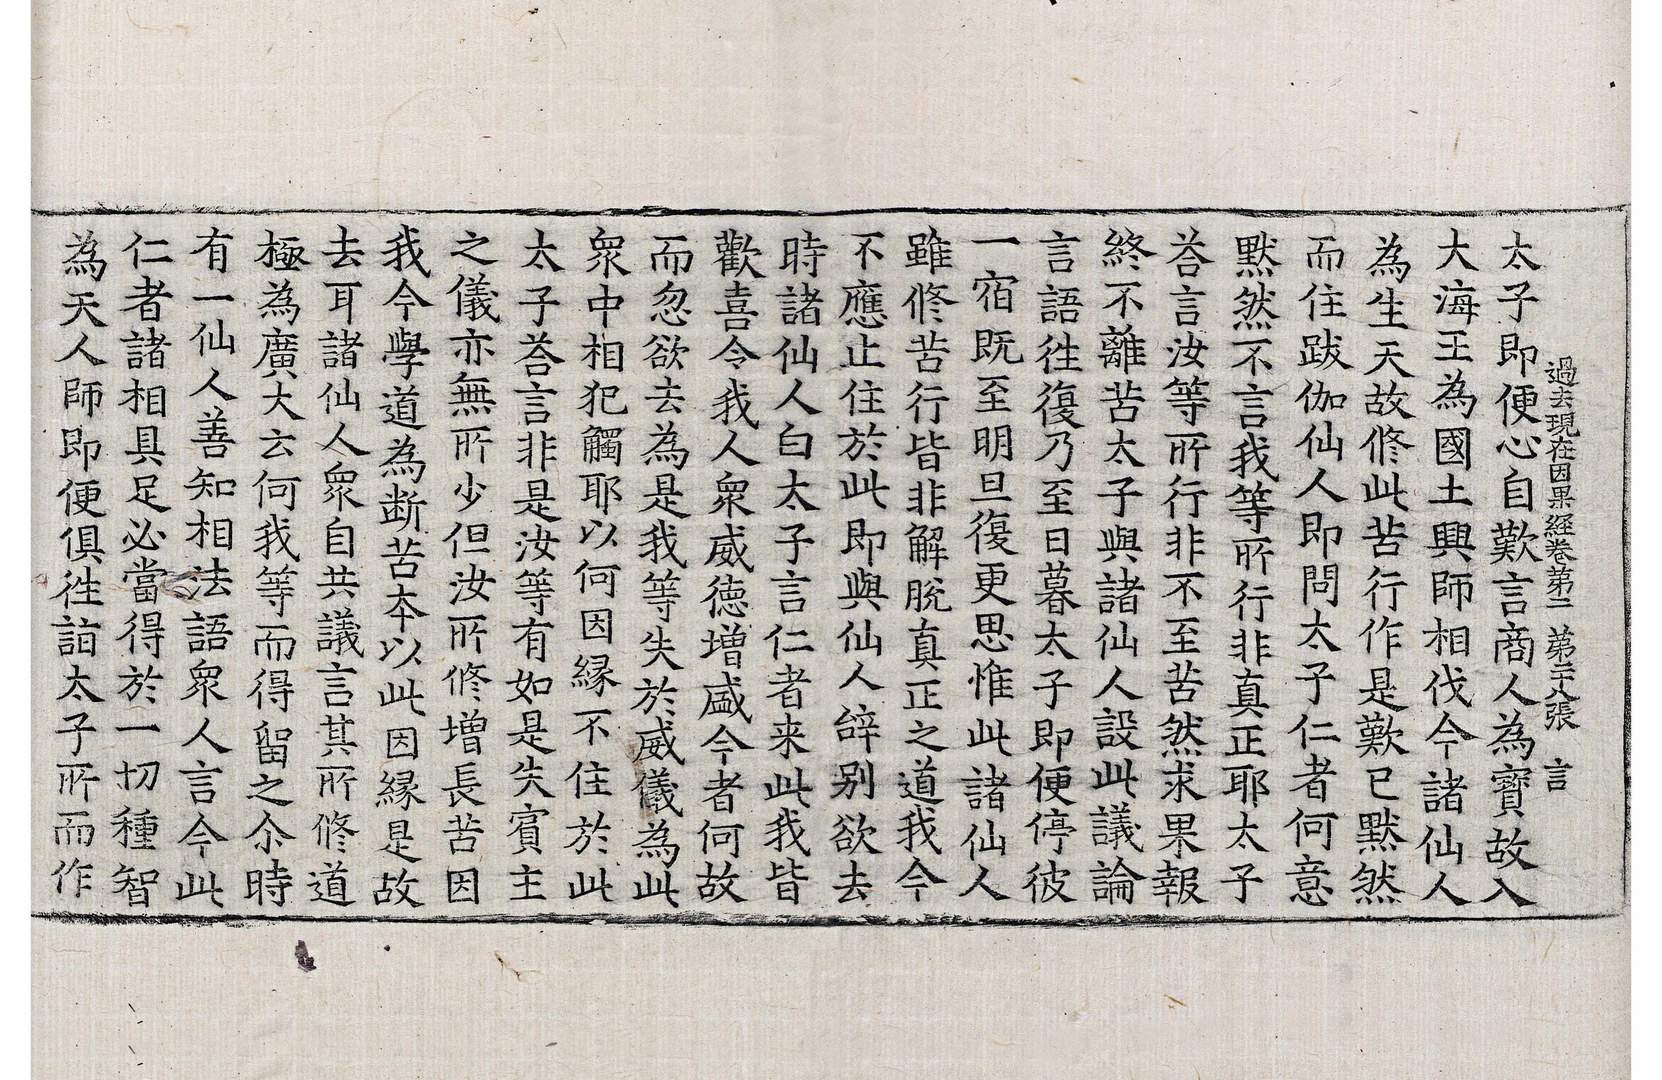 過去現在因果経卷第二 第二十八張 言
太子即便心自歎言商人為寶故入
大海王為國土興師相伐今諸仙人
為生天故修此苦行作是歎已默然
而住跋伽仙人即問太子仁者何意
默然不言我等所行非真正耶太子
荅言汝等所行非不至苦然求果報
終不離苦太子與諸仙人設此議論
言語往復乃至日暮太子即便停彼
一宿既至明旦復更思惟此諸仙人
雖修苦行皆非解脫真正之道我今
不應止住於此即與仙人辝別欲去
時諸仙人白太子言仁者来此我皆
歡喜令我人衆威德增盛今者何故
而忽欲去為是我等失於威儀為此
衆中相犯觸耶以何因緣不住於此
太子荅言非是汝等有如是失賓主
之儀亦無所少但汝所修增長苦因
我今學道為断苦本以此因緣是故
去耳諸仙人衆自共議言其所修道
極為廣大云何我等而得留之尒時
有一仙人善知相法語衆人言今此
仁者諸相具足必當得於一切種智
為天人師即便俱往詣太子所而作